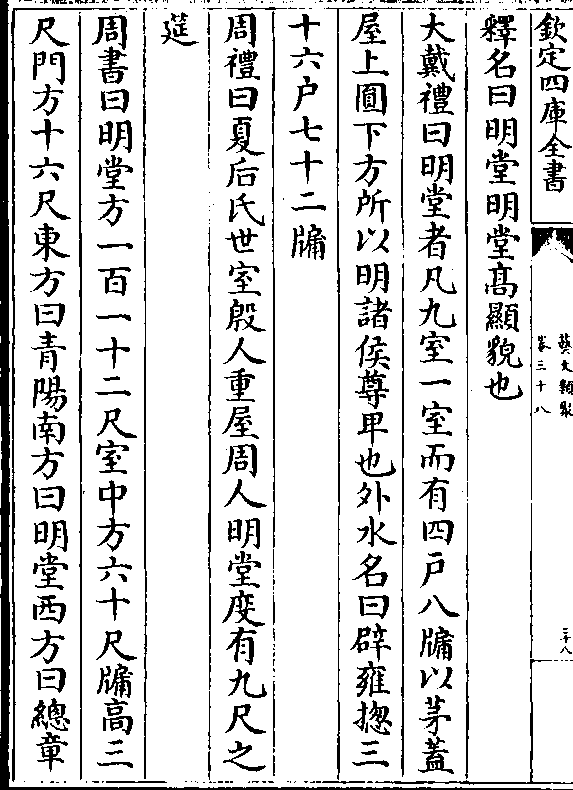 欽定四庫全書
藝文類聚
卷三十八
三十八
釋名曰明堂明堂髙顯貌也
大戴禮曰明堂者凡九室一室而有四戸八牖以茅蓋
屋上圎下方所以明諸侯尊卑也外水名曰辟雍揔三
十六户七十二牖
周禮曰夏后氏世室殷人重屋周人明堂度有九尺之
莚
周書曰明堂方一百一十二尺室中方六十尺牖高三
尺門方十六尺東方曰青陽南方曰明堂西方曰總章